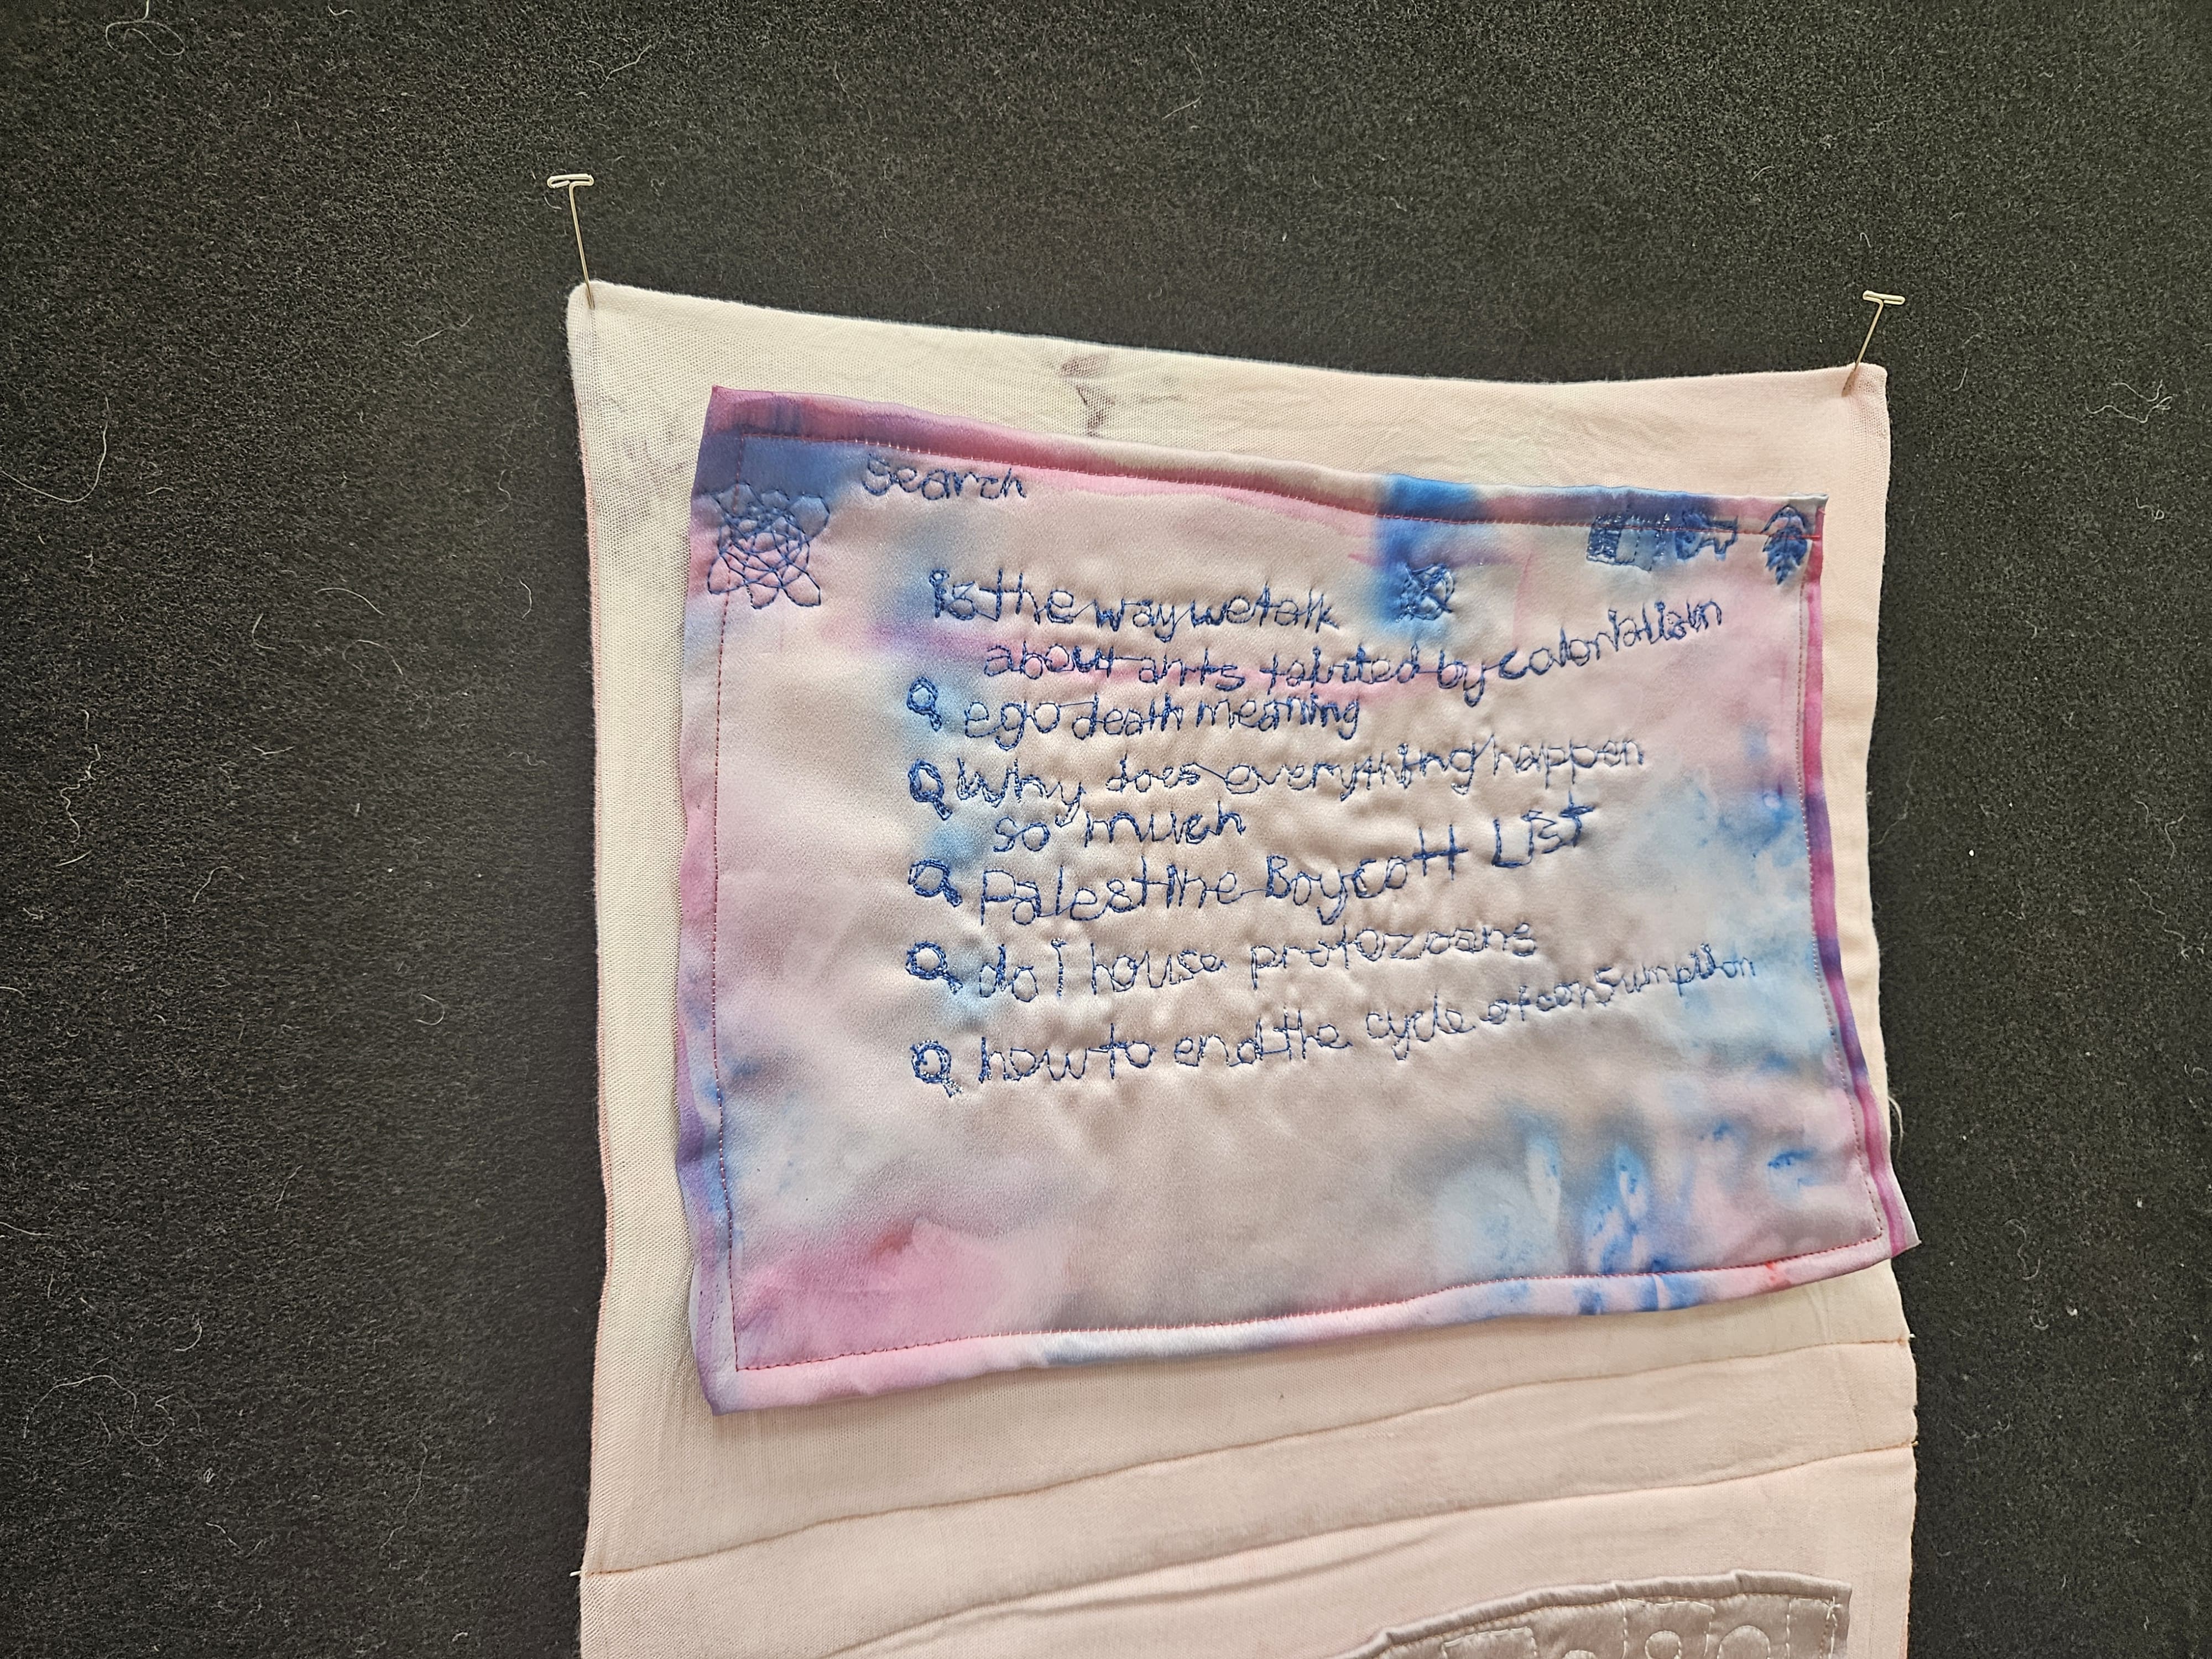 Search
is the way we talk
about arts tainted by colonialism
ego death meaning
Why does everything happen
so much
Palestine Boycott LIST
do i house protozoans
how to end the cycle of consumption